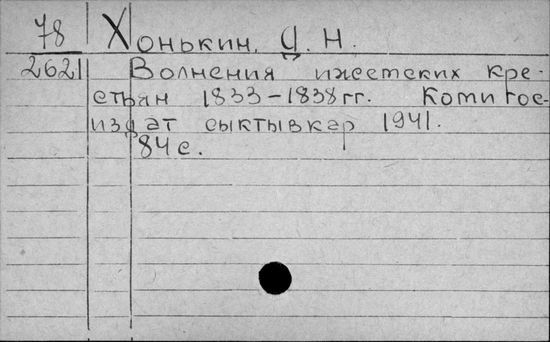 78 Хонькин, И. Н.
2621 Волнения ижемских кре-
стьян 1833-1838 гг. Коми гос-
издат Сыктывкар 1941.
84 с.